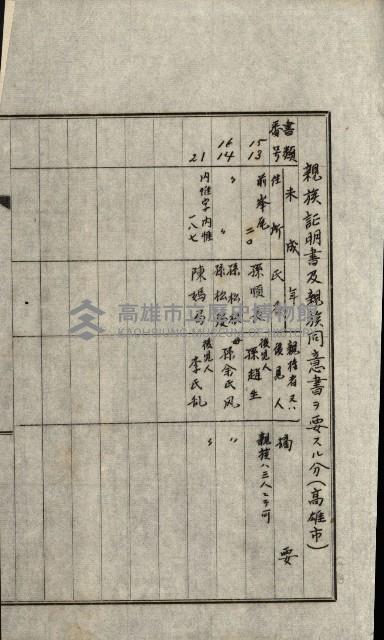 親族証明書及親族同意書ヲ要スル分(高雄市)
書類番号
未成年
住所
氏名
親権者又ハ後見人
摘要
15 13
前峯尾 二〇
孫順長
後見人 孫趙生
親族ハ三人ニテ可
16 14
〃
孫松
孫松
母 孫余氏风
〃
21
内惟字内惟 一八七
陳媽
後見人 李氏乱
〃
高雄市立歷史博物館
KAOHSIUNG MUSEUM OF HISTORY